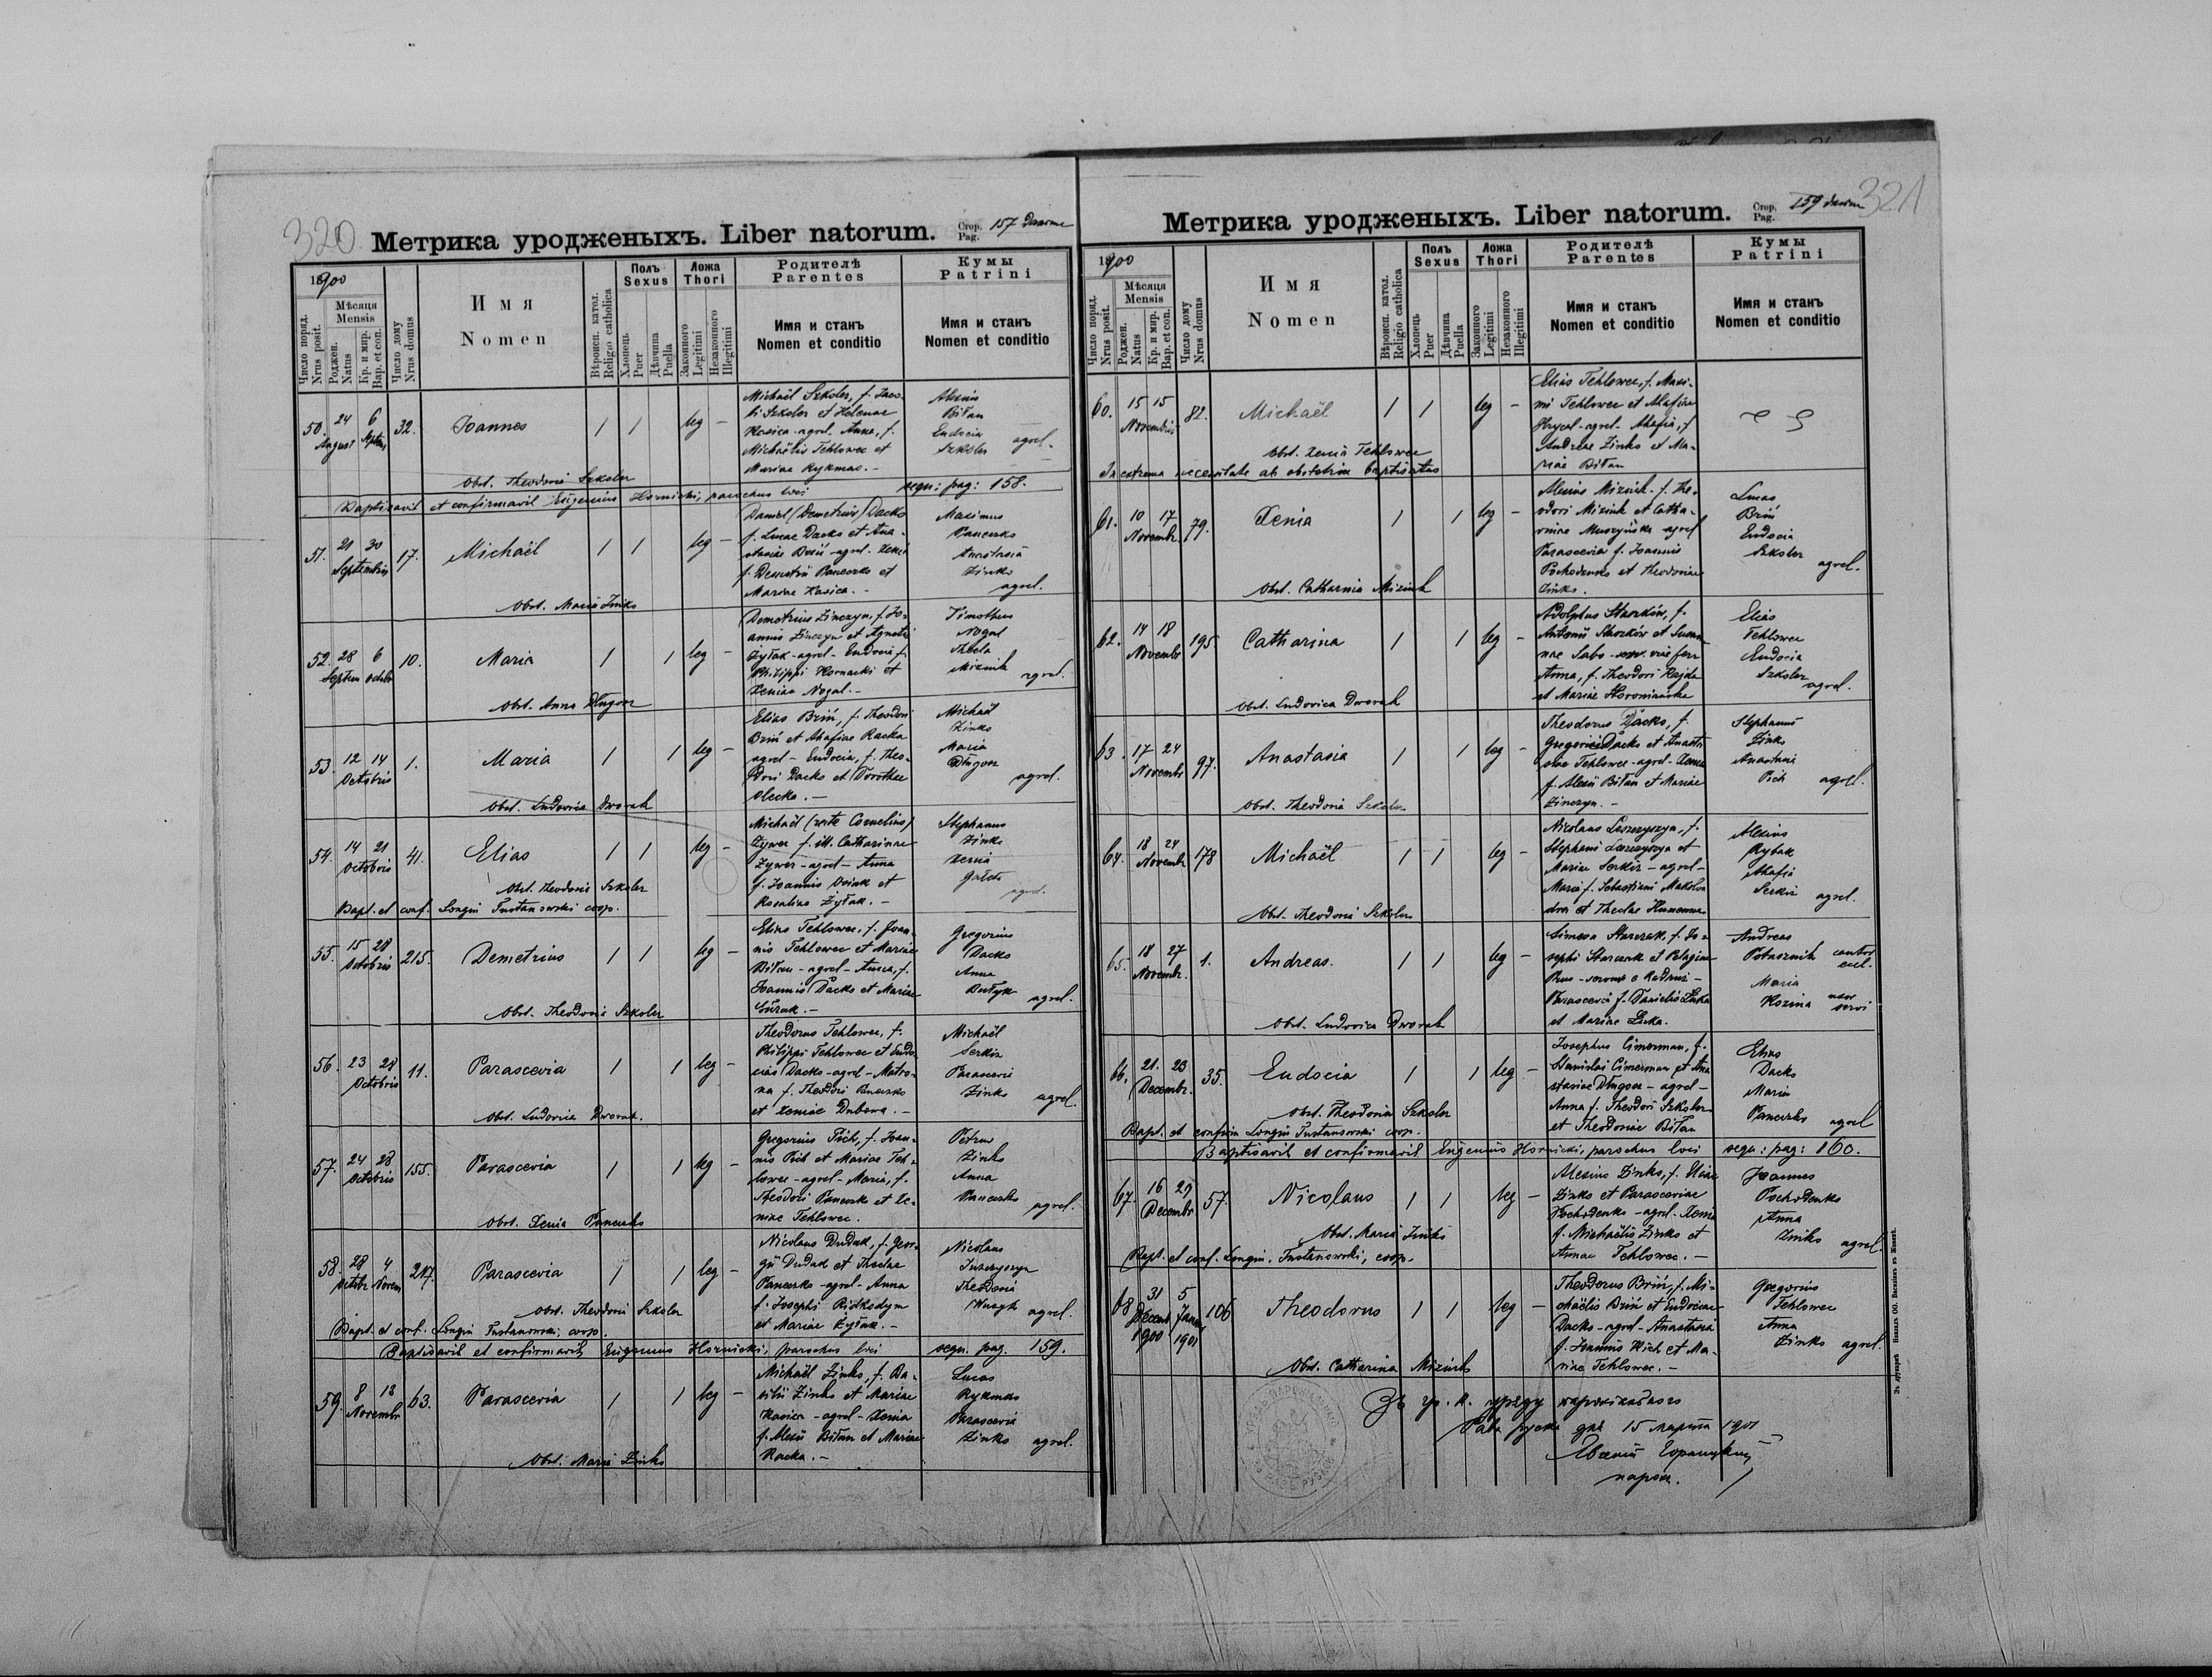 320
Метрика уродженыхъ. Liber natorum.
Стор. Pag. 157
1900
Число поряд. Nrus posit.
Мѣсяця Mensis
Роджен. Natus
Кр. и мир. Bap. et con.
Число дому Nrus domus
Имя Nomen
Вѣроисп. катол. Religio catholica
Полъ Sexus
Хлопець Puer
Дѣвчина Puella
Ложа Thori
Законного Legitimi
Незаконного Illegitimi
Родителѣ Parentes
Имя и станъ Nomen et conditio
Кумы Patrini
Имя и станъ Nomen et conditio
50. 24 August 6 Septem 32. Joannes 1 1 leg -
Michaël Szkoler, f. Jaco-
bi Szkoler et Helenae
Kosica - agrol. Anna, f.
Michaëlis Tehlowec et
Mariae Rykmac. -
Alexius
Biłan
Eudocia
Szkoler agrol.
Obst. Theodosia Szkoler
Baptisavit et confirmavit Eugenius Hornicki, parochus loci sequ: pag: 158.
51. 21 30 Septembris 17. Michaël 1 1 leg -
Daniel (Demetrius) Dacko
f. Lucae Dacko et Ana-
stasiae Briń - agrol. Xenia
f. Demetrii Panczko et
Mariae Kosica. -
Maximus
Panczko
Anastasia
Zinko
agrol.
Obst. Maria Zinko
52. 28 Septem 6 Octobr 10. Maria 1 1 leg -
Demetrius Zinczyn, f. Jo-
annis Zinczyn et Agnetis
Żyłak - agrol - Eudocia f.
Philippi Hornacki et
Xeniae Nogal. -
Timotheus
Nogal
Thecla
Miziuk agrol.
Obst. Anna Długosz
53. 12 14 Octobris 1. Maria 1 1 leg -
Elias Briń, f. Theodori
Briń et Ahafiae Racka
agrol - Eudocia, f. Theo-
dori Dacko et Dorothee
Olecka. -
Michaël
Zinko
Maria
Długosz
agrol.
Obst. Ludovica Dworak
54. 14 21 Octobris 41. Elias 1 1 leg -
Michaël (recte Cornelius)
Żywer f. ill. Catharinae
Żywer - agrol - Anna
f. Joannis Osiuk et
Rosaliae Żyłak. -
Stephanus
Zinko
Xenia
agrol.
Obst. Theodosia Szkoler
Bapt. et conf. Longin Tustanowski coop.
55. 15 28 Octobris 215. Demetrius 1 1 leg -
Elias Tehlowec, f. Joan-
nis Tehlowec et Mariae
Biłan - agrol - Anna, f.
Joannis Dacko et Mariae
Gregorius
Dacko
Anna
agrol.
Obst. Theodosia Szkoler
56. 23 28 Octobris 11. Parascevia 1 1 leg -
Theodorus Tehlowec, f.
Philippi Tehlowec et Eudo-
ciae Dacko - agrol - Matro-
na f. Theodori Panczko
et Xeniae Dubowa. -
Michaël
Serkiz
Parascevia
Zinko agrol.
Obst. Ludovica Dworak.
57. 24 28 Octobris 155. Parascevia 1 1 leg -
Gregorius Pich, f. Joan-
nis Pich et Mariae Teh-
lowec - agrol - Maria, f.
Theodori Panczko et Xe-
niae Tehlowec.
Petrus
Zinko
Anna
Panczko agrol.
Obst. Xenia Panczko
58. 28 Octobr 4 Novem 217. Parascevia 1 1 leg -
Nicolaus Dudak, f. Geor-
gii Dudak et Theclae
Panczko - agrol - Anna
f. Josephi Ridkodym
et Mariae Żyłak. -
Nicolaus
Theodosia
agrol.
Obst. Theodosia Szkoler
Bapt. et conf. Longin Tustanowski, coop.
Baptisavit et confirmavit Eugenius Hornicki, parochus loci sequ. pag. 159.
59. 8 13 Novembr 63. Parascevia 1 1 leg -
Michaël Zinko, f. Ba-
silii Zinko et Mariae
Kosica - agrol - Xenia
f. Alexii Biłan et Mariae
Racka. -
Lucas
Rykmas
Parascevia
Zinko agrol.
Obst. Maria Zinko
321
Метрика уродженыхъ. Liber natorum.
Стор. Pag. 159
1900
Число поряд. Nrus posit.
Мѣсяця Mensis
Роджен. Natus
Кр. и мир. Bap. et con.
Число дому Nrus domus
Имя Nomen
Вѣроисп. катол. Religio catholica
Полъ Sexus
Хлопець Puer
Дѣвчина Puella
Ложа Thori
Законного Legitimi
Незаконного Illegitimi
Родителѣ Parentes
Имя и станъ Nomen et conditio
Кумы Patrini
Имя и станъ Nomen et conditio
60. 15 15 Novembris 82. Michaël 1 1 leg -
Elias Tehlowec, f. Maxi-
mi Tehlowec et Ahafiae
Hrycel - agrol - Ahafia, f.
Andreae Zinko et Ma-
riae Biłan
Obst. Xenia Tehlowec
In extrema necessitate ab obstetrice baptisatus
61. 10 17 Novembr. 79. Xenia 1 1 leg -
Alexius Miziuk, f. The-
odori Miziuk et Catha-
rinae Muszyńska agrol
Parascevia f. Joannis
Pochodenko et Theodosiae
Zinko.
Lucas
Briń
Eudocia
Szkoler agrol.
Obst. Catharina Miziuk
62. 14 18 Novembr 195. Catharina 1 1 leg -
Adolphus Starków, f.
Antonii Starków et Susan-
nae Sabo - serv. viae ferr
Anna, f. Theodori Rajda
et Mariae
Elias
Tehlowec
Eudocia
Szkoler agrol.
Obst. Ludovica Dworak
63. 17 24 Novembr 97. Anastasia 1 1 leg -
Theodorus Dacko, f.
Gregorii Dacko et Anasta-
siae Tehlowec - agrol - Xenia
f. Alexii Biłan et Mariae
Zinczyn. -
Stephanus
Zinko
Anastasia
Pich agrol.
Obst. Theodosia Szkoler
64. 18 24 Novembr 178 Michaël 1 1 leg -
Nicolaus Leszczyszyn, f.
Stephani Leszczyszyn et
Mariae Serkiz - agrol -
Maria f. Sebastiani
et Theclae
Alexius
Rybak
Ahafia
Serkiz agrol.
Obst. Theodosia Szkoler
65. 18 27 Novembr. 1. Andreas. 1 1 leg -
Simeon Starczak, f. Jo-
sephi Starczak et Pelagiae
Parascevia f. Danielis Luka
et Mariae Luka.
Andreas
Potasznik cantor eccl.
Maria
Kozina uxor servi
Obst. Ludovica Dworak
66. 21. 23 Decembr. 35. Eudocia 1 1 leg -
Josephus Cimerman, f.
Stanislai Cimerman et Ana
stasiae Długosz - agrol -
Anna f. Theodori Szkoler
et Theodosiae Biłan
Elias
Dacko
Maria
Panczko agrol
Obst. Theodosia Szkoler
Bapt. et confirm Longin Tustanowski coop.
Baptisavit et confirmavit Eugenius Hornicki, parochus loci sequ: pag: 160.
67. 16 29 Decembr 57. Nicolaus 1 1 leg -
Alexius Zinko, f. Eliae
Zinko et Parasceviae
Pochodenko - agrol. Xenia
f. Michaëlis Zinko et
Annae Tehlowec. -
Joannes
Pochodenko
Anna
Zinko agrol.
Obst. Maria Zinko
Bapt. et conf. Longin. Tustanowski, coop.
68 31 Decemb 1900 5 Januar 1901 106 Theodorus 1 1 leg -
Theodorus Briń, f. Mi-
chaëlis Briń et Eudociae
Dacko - agrol - Anastasia
f. Joannis Pich et Ma-
riae Tehlowec. -
Gregorius
Tehlowec
Anna
Zinko agrol.
Obst. Catharina Miziuk
Зъ гр. к. уряду парохіяльного
Рава руска дня 15 марта 1901
парох.